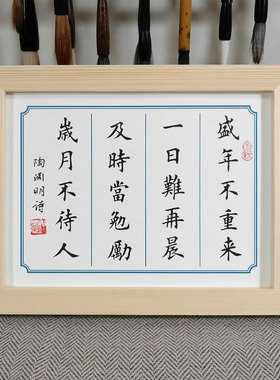 盛年不重来
一日難再晨
及時當勉勵
歳月不待人
陶淵明诗